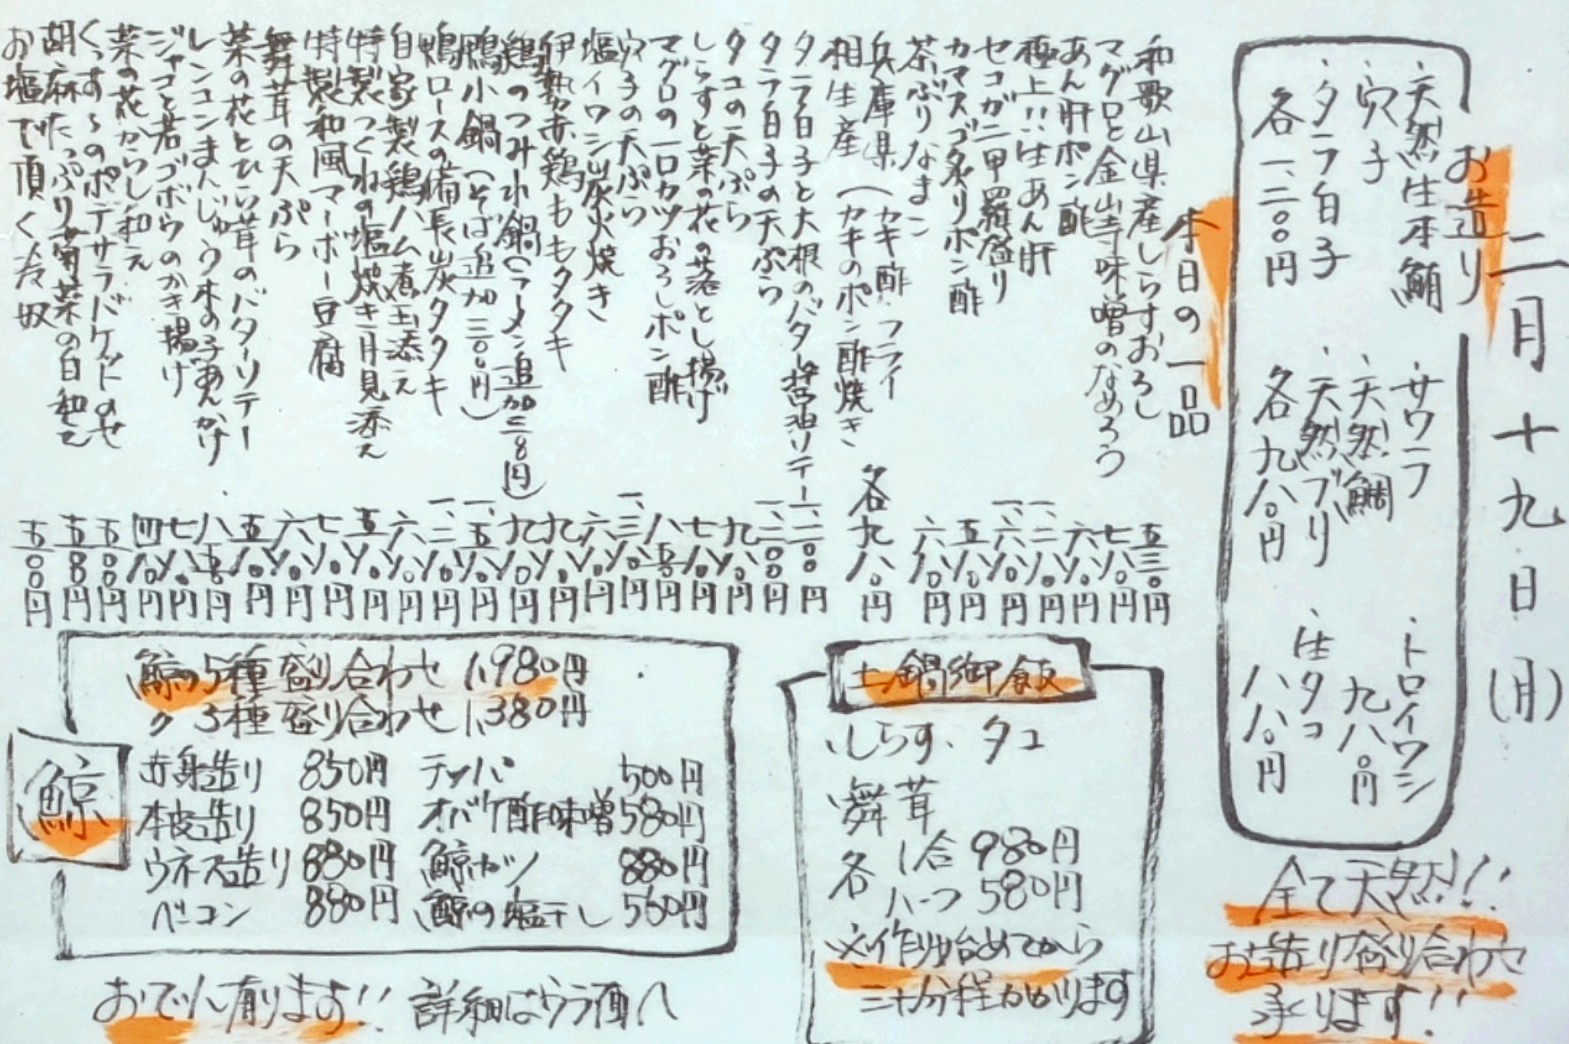 二月十九日(月)
お造り
・天然生本鮪
・穴子
・タラ白子
各一、二〇〇円
・サワラ
・天然鯛
・天然ブリ
各九八〇円
・トロイワシ
九八〇円
・生タコ
八八〇円
全て天然!!
お造り盛り合わせ
承ります!!
本日の一品
和歌山県産しらすおろし 五三〇円
マグロと金山寺味噌のなめろう 七八〇円
あん肝ポン酢 六八〇円
極上!!生あん肝 一、二八〇円
セコガニ甲羅盛り 一、六八〇円
カマスゴ炙りポン酢 五八〇円
茶ぶりなまこ 六八〇円
兵庫県 (カキ酢・フライ
相生産 (カキのポン酢焼き 各九八〇円
タラ白子と大根のバター醤油ソテー 一、二〇〇円
タラ白子の天ぷら 一、二〇〇円
タコの天ぷら 九八〇円
しらすと菜の花の落とし揚げ 七八〇円
マグロの一口カツおろしポン酢 八五〇円
穴子の天ぷら 一、三八〇円
塩イワシ炭火焼き 六八〇円
伊勢赤鶏ももタタキ 九八〇円
鶏のつみれ小鍋(ラーメン追加三八〇円) 九八〇円
鴨小鍋(そば追加三〇〇円) 一、五八〇円
鴨ロースの備長炭タタキ 一、二八〇円
自家製鶏ハム煮玉添え 六八〇円
特製つくねの塩焼き月見添え 五八〇円
特製和風マーボー豆腐 七八〇円
舞茸の天ぷら 六八〇円
菜の花とひら茸のバターソテー 五八〇円
レンコンまんじゅう木の子あんかけ 八五〇円
ジャコと若ゴボウのかき揚げ 七八〇円
菜の花からし和え 四八〇円
くっすんのポテサラバケットのせ 五〇〇円
胡麻たっぷり菊菜の白和え 五八〇円
お塩で頂く冷奴 五〇〇円
土鍋御飯
・しらす・タコ
・舞茸
各 1合980円
ハーフ580円
※作り始めてから
三十分程かかります
鯨
鯨の5種盛り合わせ 1,980円
〃 3種盛り合わせ 1,380円
赤身造り 850円 テッパ 500円
本皮造り 850円 オバケ酢味噌 580円
ウネス造り 880円 鯨カツ 880円
ベーコン 880円 鯨の塩干し 560円
おでん有ります!! 詳細はウラ面へ